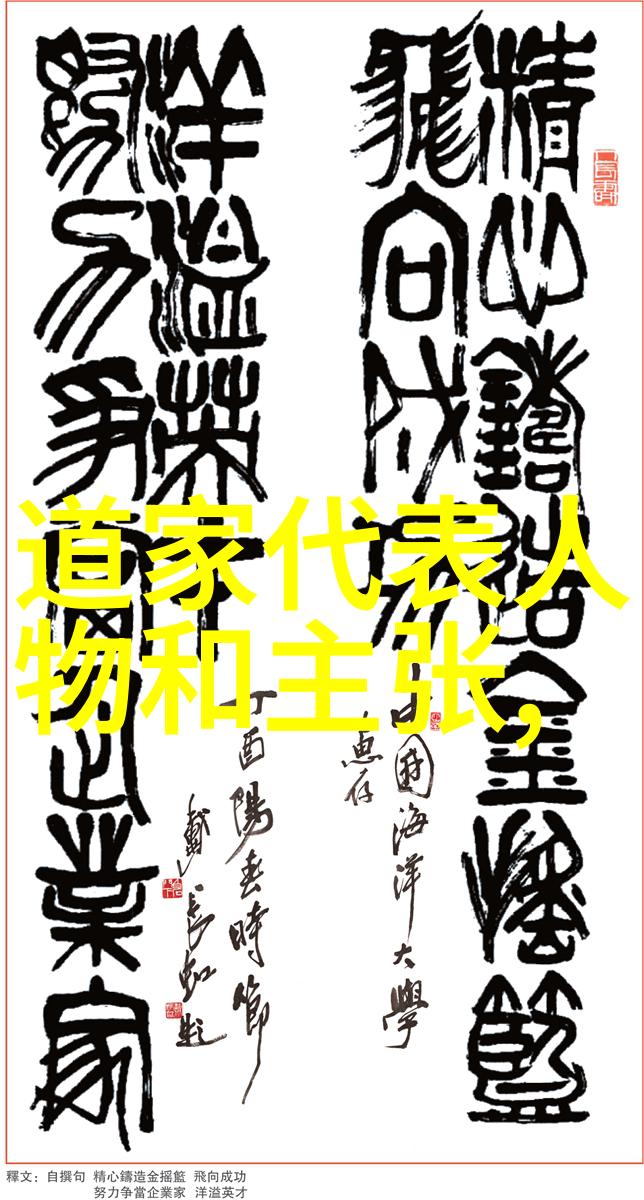 道家代表人
物和主张,
精心鑄造金搖籃
飛向成功
中國海洋大學
惠存
努力爭當企業家
洋溢英才
丁酉陽春時節
戴長虹題
釋文：自撰句 精心鑄造金摇籃 飛向成功
努力争當企業家 洋溢英才